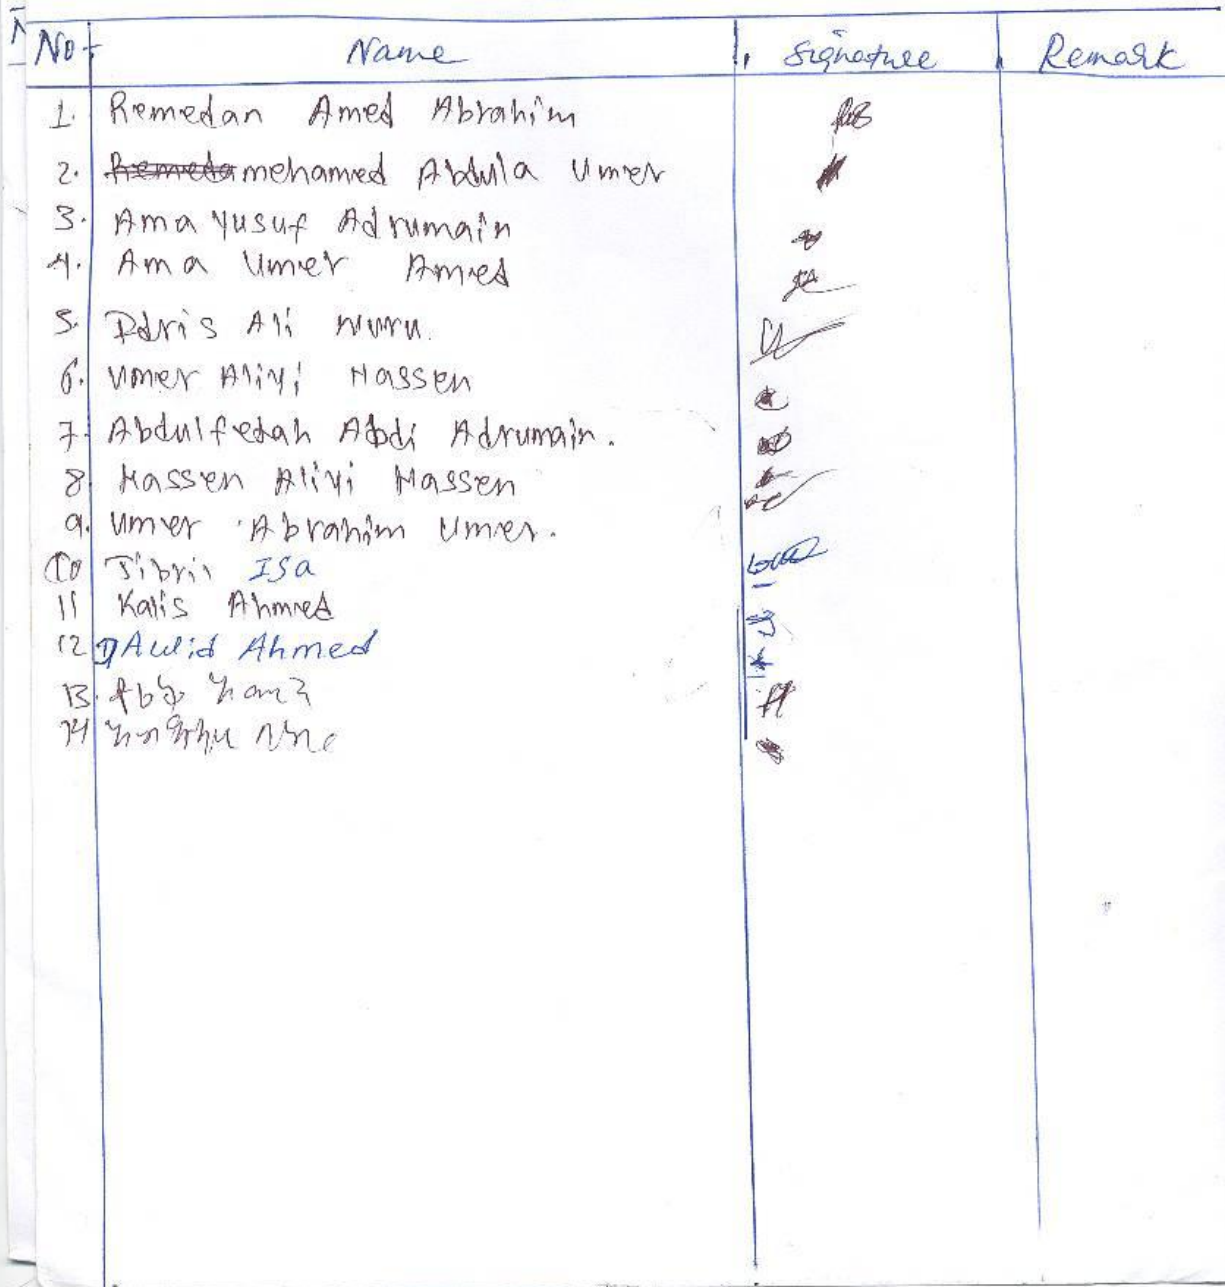 No Name Signature Remark
1. Remedan Amed Abrahim
2. mehamed Abdula Umer
3. Ama yusuf Adrumain
4. Ama Umer Amed
5. Idris Ali nuru.
6. Umer Aliyi Hassen
7. Abdulfetah Abdi Adrumain.
8 Hassen Aliyi Hassen
9. Umer Abrahim Umer.
10 Jibril ISa
11 Kalis Ahmed
12 Awlid Ahmed
13.
14